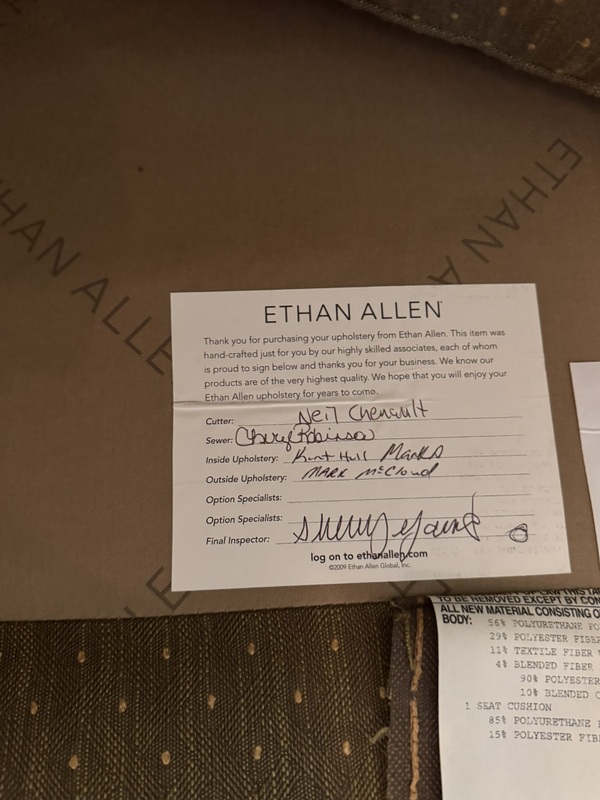 ETHAN ALLEN
ETHAN ALLEN
ETHAN ALLEN
Thank you for purchasing your upholstery from Ethan Allen. This item was
hand-crafted just for you by our highly skilled associates, each of whom
is proud to sign below and thanks you for your business. We know our
products are of the very highest quality. We hope that you will enjoy your
Ethan Allen upholstery for years to come.
Cutter: Neil Chenault
Sewer: Cheryl Robinson
Inside Upholstery: Kent Hull Marks
Outside Upholstery: MARK McCloud
Option Specialists:
Option Specialists:
Final Inspector: Sherry Young
log on to ethanallen.com
©2009 Ethan Allen Global, Inc.
TO BE REMOVED EXCEPT BY CON
ALL NEW MATERIAL CONSISTING O
BODY: 56% POLYURETHANE FO
29% POLYESTER FIBER
11% TEXTILE FIBER
4% BLENDED FIBER
90% POLYESTER
10% BLENDED C
1 SEAT CUSHION
85% POLYURETHANE
15% POLYESTER FIB